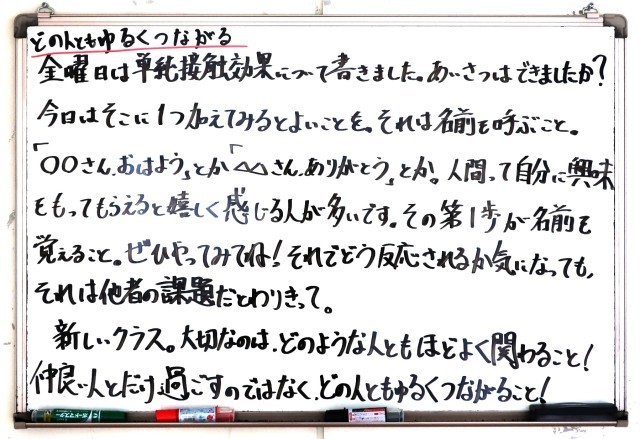 どの人ともゆるくつながる
金曜日は単純接触効果について書きました。あいさつはできましたか？
今日はそこに1つ加えてみるとよいことを。それは名前を呼ぶこと。
「〇〇さん、おはよう」とか「△△さん、ありがとう」とか。人間って自分に興味
をもってもらえると嬉しく感じる人が多いです。その第1歩が名前を
覚えること。ぜひやってみてね！それでどう反応されるか気になっても、
それは他者の課題だとわりきって。
新しいクラス。大切なのは、どのような人ともほどよく関わること！
仲良い人とだけ過ごすのではなく、どの人ともゆるくつながること！
ボードマスター